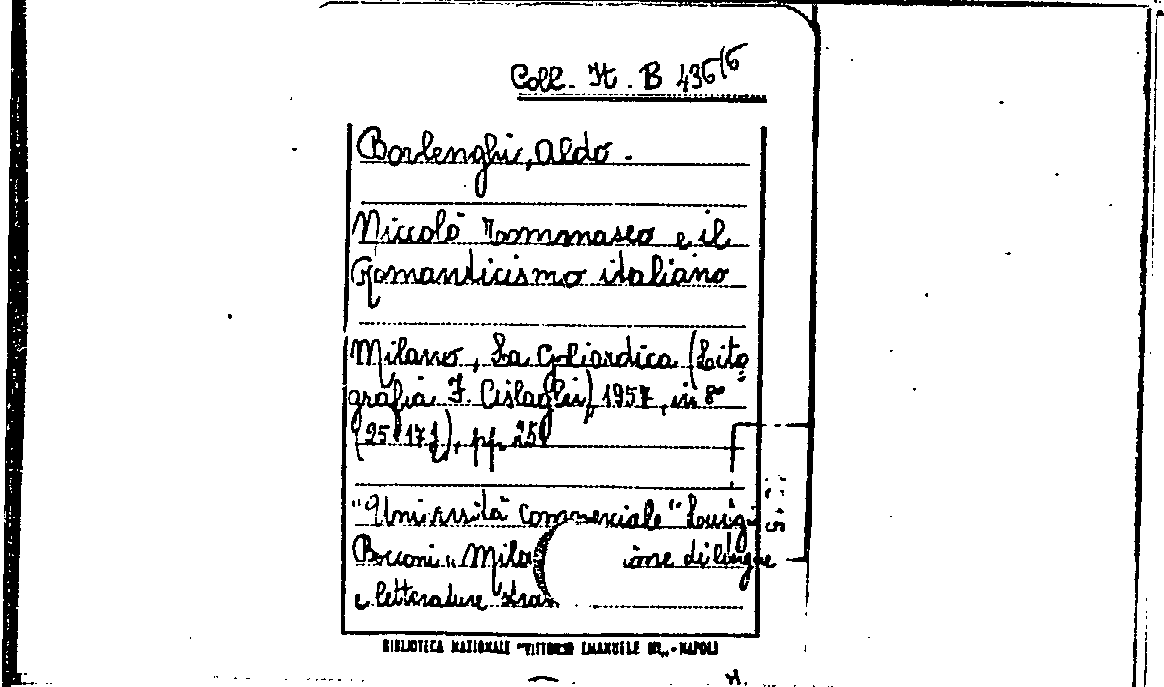 Coll. It. B 436/6
Borlenghi, Aldo.
Niccolò Tommaseo e il
Romanticismo italiano
Milano, La Goliardica (Lito
grafia F. Cislaghi), 1957, in 8°
(25×17), pp.
"Università commerciale "Luigi
Bocconi" Mila ione di lingue
e letterature stran
BIBLIOTECA NAZIONALE "VITTORIO EMANUELE III" - NAPOLI